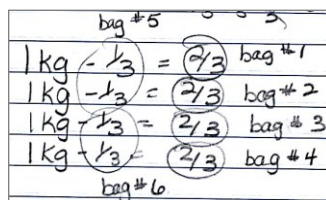 bag #5
1 kg - 1/3 = 2/3 bag #1
1 kg - 1/3 = 2/3 bag #2
1 kg - 1/3 = 2/3 bag #3
1 kg - 1/3 = 2/3 bag #4
bag #6